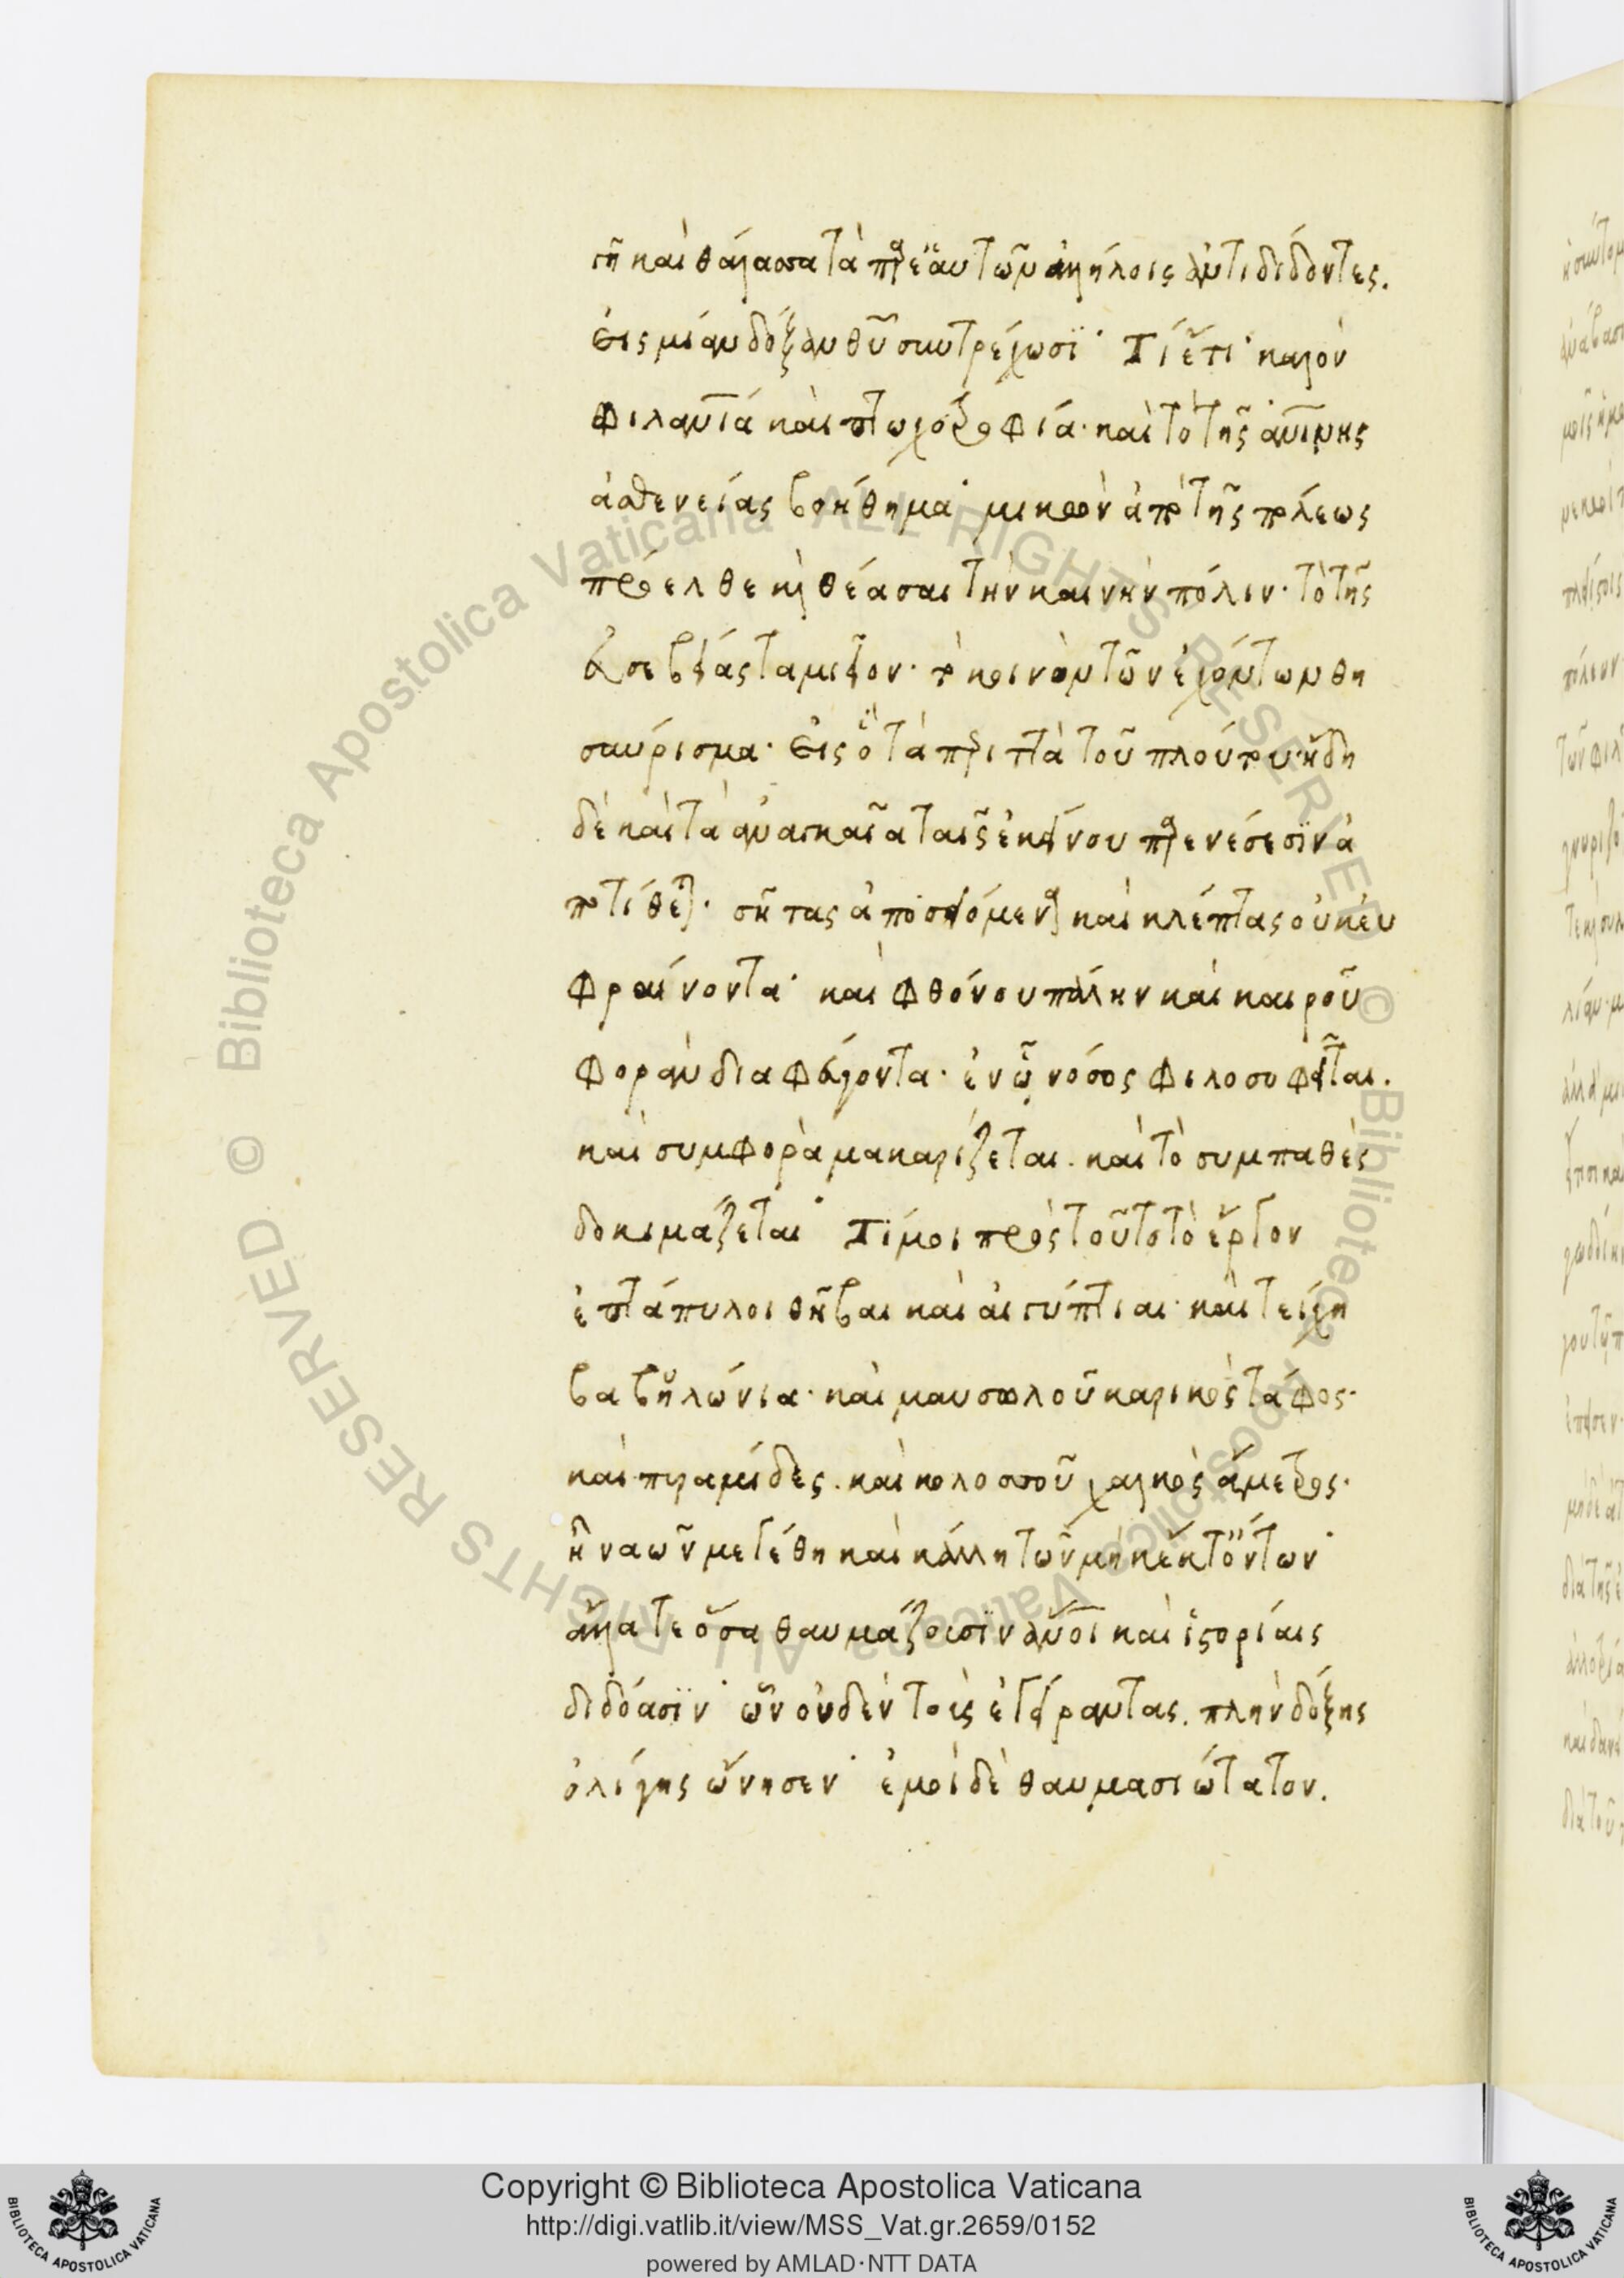 γῆ καὶ θάλασσα τὰ παρ' ἑαυτῶν ἀλλήλοις ἀντιδιδόντες.
εἰς μίαν δόξαν θυ συντρέχωσϊ· Τί ἔτι· καλὸν
φιλανια καὶ πτωχοτροφία· καὶ τὸ τῆς ανινης
ἀσθενείας βοήθημα· μικρὸν ἀπὸ τῆς πόλεως
πρόελθε κὶ θέασαι τὴν καινὴν πόλιν· τὸ τῆς
εὐσεβείας ταμιεῖον· τὸ κοινὸν τῶν ἐχόντων θη
σαύρισμα· εἰς ὃ τὰ περιττὰ τοῦ πλούτου· ἤδη
δὲ καὶ τὰ ἀναγκαῖα ταῖς ἐκείνου παραινέσεσϊν ἀ
ποτίθεται· σῆτας ἀποσειόμενα καὶ κλέπτας οὐκ εὐ
φραίνοντα· καὶ φθόνου πάλην καὶ καιροῦ
φορὰν διαφεύγοντα· ἐν ᾧ νόσος φιλοσοφεῖται.
καὶ συμφορὰ μακαρίζεται. καὶ τὸ συμπαθὲς
δοκιμάζεται· Τί μοι πρὸς τοῦτο τὸ ἔργον
ἑπτάπυλοι θῆβαι καὶ αἰγύπτιαι· καὶ τείχη
βαβυλώνια· καὶ μαυσωλοῦ καρικὸς τάφος·
καὶ πυραμίδες. καὶ κολοσσοῦ χαλκὸς ἄμετρος·
ἢ ναῶν μεγέθη καὶ κάλλη τῶν μηκέτι ὄντων·
ἄλλα τε ὅσα θαυμάζουσϊν ἄνοι καὶ ἱστορίαις
διδόασϊν· ὧν οὐδὲν τοὺς ἐγείραντας. πλὴν δόξης
ὀλίγης ὤνησεν· ἐμοὶ δὲ θαυμασιώτατον.
Copyright © Biblioteca Apostolica Vaticana
http://digi.vatlib.it/view/MSS_Vat.gr.2659/0152
powered by AMLAD·NTT DATA